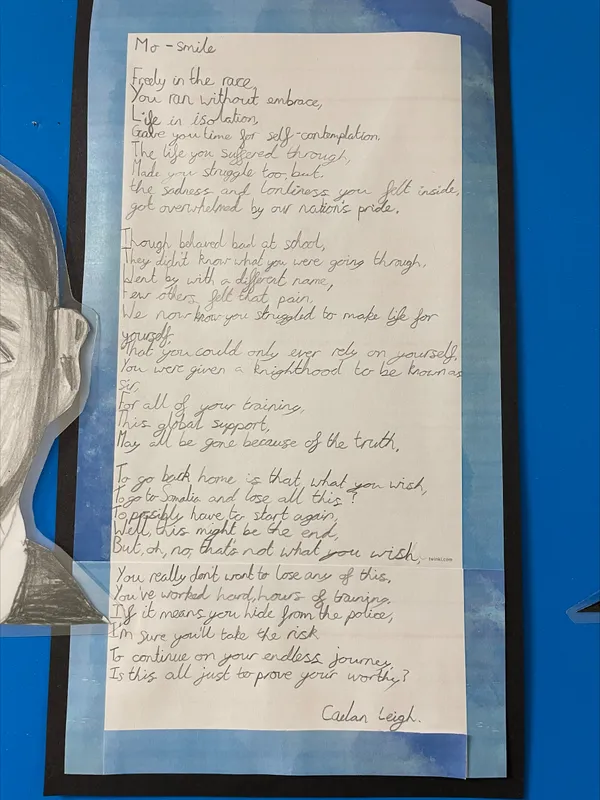 Mo - Smile
Freely in the race,
You ran without embrace,
Life in isolation,
Gave you time for self-contemplation.
The life you suffered through,
Made you struggle too, but.
the sadness and lonliness you felt inside,
got overwhelmed by our nation's pride.
Though behaved bad at school,
They didn't know what you were going through,
Went by with a different name,
Few others, felt that pain,
We now know you struggled to make life for
yourself,
That you could only ever rely on yourself,
You were given a knighthood to be known as
Sir,
For all of your training,
This global support,
May all be gone because of the truth,
To go back home is that, what you wish,
To go to Somalia and lose all this?
To possibly have to start again,
Well, this might be the end,
But, oh, no, that's not what you wish,
twinkl.com
You really don't want to lose any of this,
You've worked hard, hours of training.
If it means you hide from the police,
I'm sure you'll take the risk
To continue on your endless journey,
Is this all just to prove your worthy?
Caelan Leigh.